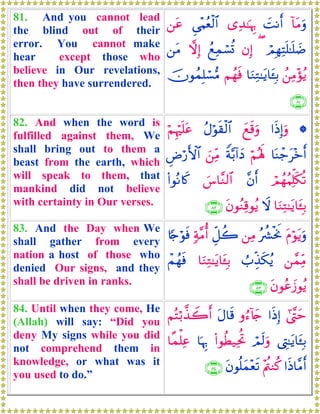 81. And you cannot lead
the blind out of their
error. You cannot make
hear except those who
believe in Our revelations,
then they have surrendered.
وَمَآ أَنتَ بِهَٰدِى ٱلْعُمْىِ عَن
ضَلَٰلَتِهِمْ ۖ إِن تُسْمِعُ إِلَّا مَن
يُؤْمِنُ بِـَٔايَٰتِنَا فَهُم مُّسْلِمُونَ
﴿٨١﴾
82. And when the word is
fulfilled against them, We
shall bring out to them a
beast from the earth, which
will speak to them, that
mankind did not believe
with certainty in Our verses.
۞ وَإِذَا وَقَعَ ٱلْقَوْلُ عَلَيْهِمْ
أَخْرَجْنَا لَهُمْ دَآبَّةً مِّنَ ٱلْأَرْضِ
تُكَلِّمُهُمْ أَنَّ ٱلنَّاسَ كَانُوا۟
بِـَٔايَٰتِنَا لَا يُوقِنُونَ ﴿٨٢﴾
83. And the Day when We
shall gather from every
nation a host of those who
denied Our signs, and they
shall be driven in ranks.
وَيَوْمَ نَحْشُرُ مِن كُلِّ أُمَّةٍ فَوْجًا
مِّمَّن يُكَذِّبُ بِـَٔايَٰتِنَا فَهُمْ
يُوزَعُونَ ﴿٨٣﴾
84. Until when they come, He
(Allah) will say: “Did you
deny My signs while you did
not comprehend them in
knowledge, or what was it
you used to do.”
حَتَّىٰٓ إِذَا جَآءُو قَالَ أَكَذَّبْتُم
بِـَٔايَٰتِى وَلَمْ تُحِيطُوا۟ بِهَا عِلْمًا
أَمَّاذَا كُنتُمْ تَعْمَلُونَ ﴿٨٤﴾